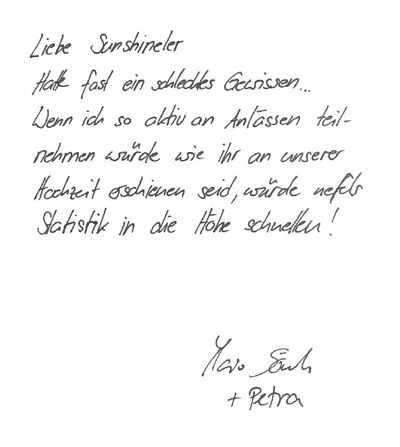 Liebe Sunshineler
Hatte fast ein schlechtes Gewissen...
Wenn ich so aktiv an Anlässen teil-
nehmen würde wie ihr an unserer
Hochzeit erschienen seid, würde nefels
Statistik in die Höhe schnellen!
+ Petra